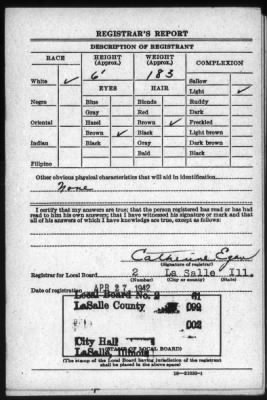 REGISTRAR'S REPORT
DESCRIPTION OF REGISTRANT
RACE HEIGHT (Approx.) WEIGHT (Approx.) COMPLEXION
White ✓ 6' 183 Sallow
EYES HAIR Light ✓
Negro Blue Blonde Ruddy
Gray Red Dark
Oriental Hazel Brown ✓ Freckled
Brown ✓ Black Light brown
Indian Black Gray Dark brown
Bald Black
Filipino
Other obvious physical characteristics that will aid in identification
None
I certify that my answers are true; that the person registered has read or has had
read to him his own answers; that I have witnessed his signature or mark and that
all of his answers of which I have knowledge are true, except as follows:
Catherine Egan
(Signature of registrar)
Registrar for Local Board 2 La Salle Ill.
(Number) (City or county) (State)
Date of registration APR 27 1942
Local Board No. 2 61
LaSalle County 099
002
City Hall
LaSalle, Illinois
(STAMP OF LOCAL BOARD)
(The stamp of the Local Board having jurisdiction of the registrant
shall be placed in the above space.)